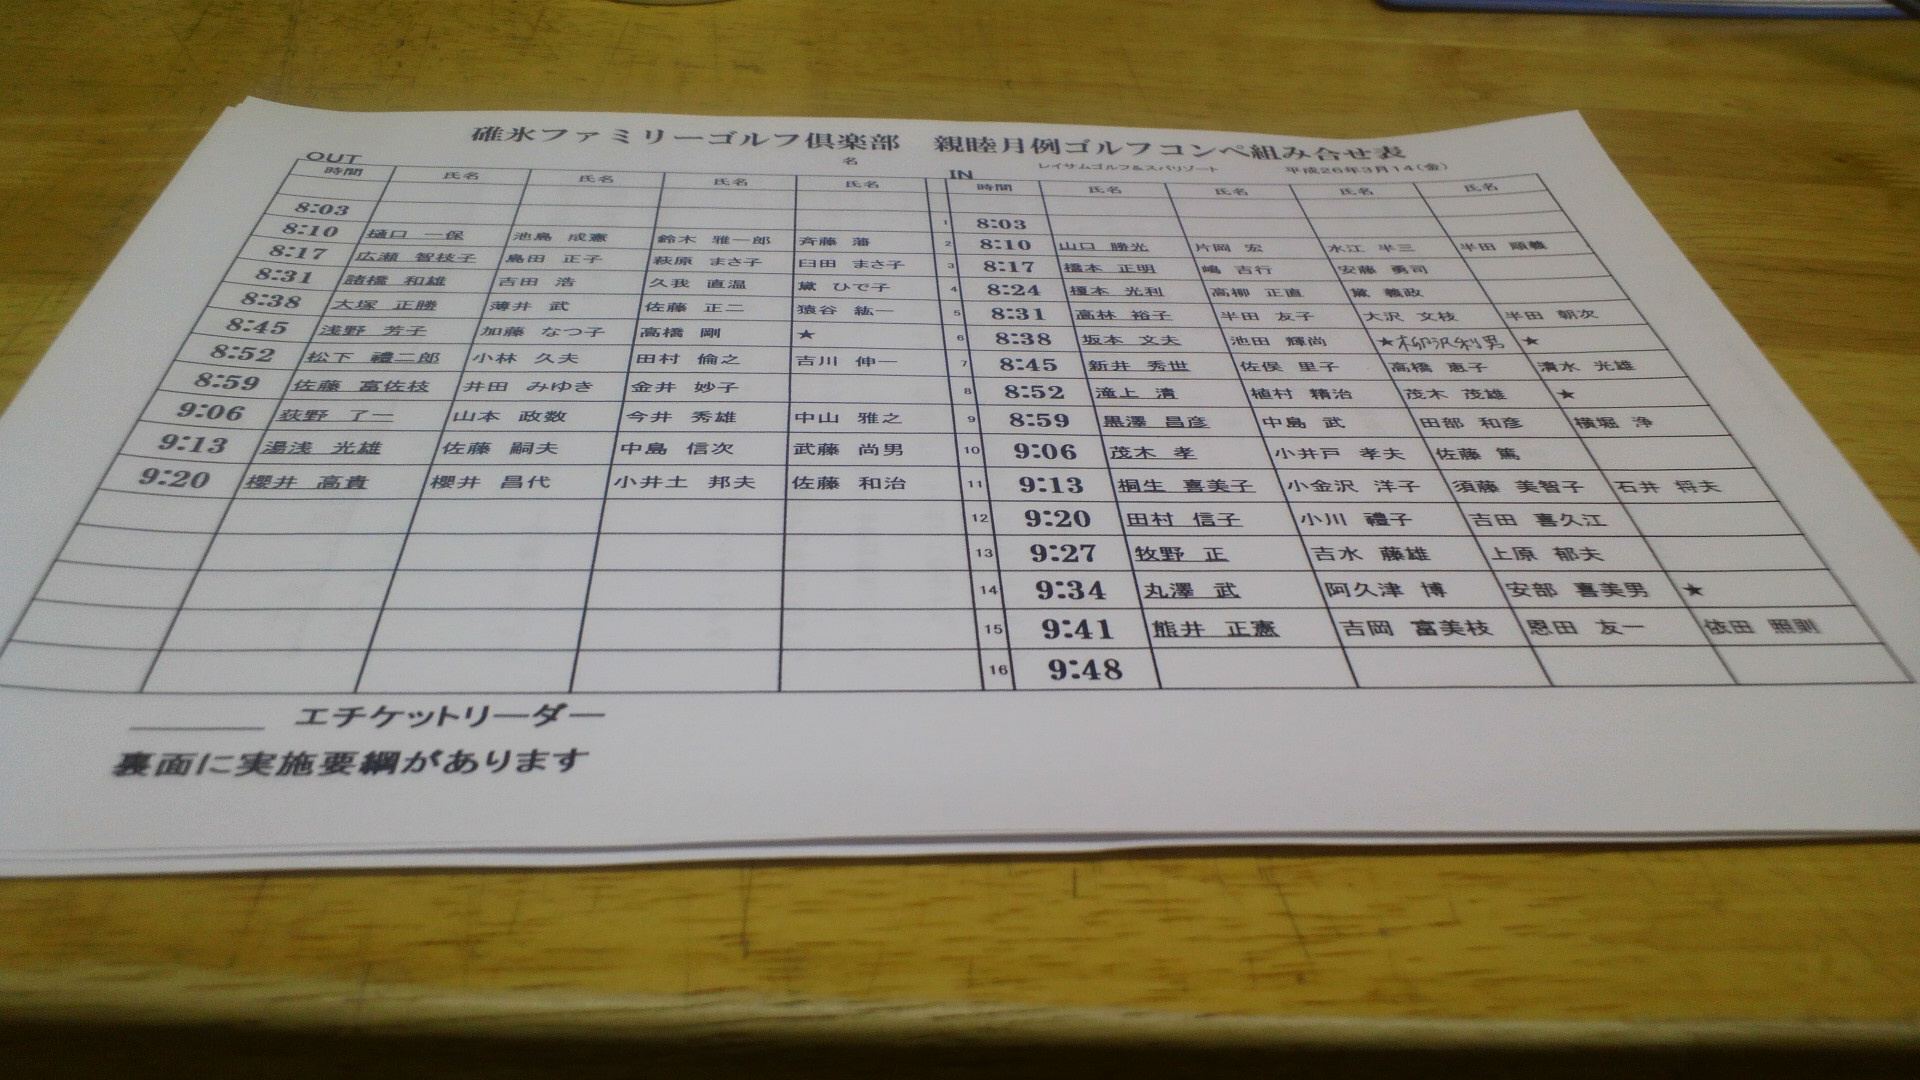 碓氷ファミリーゴルフ倶楽部 親睦月例ゴルフコンペ組み合せ表
名 レイサムゴルフ&スパリゾート 平成26年3月14(金)
OUT
時間 氏名 氏名 氏名 氏名
8:03
8:10 樋口 一保 池島 成憲 鈴木 雅一郎 斉藤
8:17 広瀬 智枝子 島田 正子 萩原 まさ子 臼田 まさ子
8:31 諸橋 和雄 吉田 浩 久我 直温 黛 ひで子
8:38 大塚 正勝 薄井 武 佐藤 正二 猿谷 紘一
8:45 浅野 芳子 加藤 なつ子 高橋 剛 ★
8:52 松下 禮二郎 小林 久夫 田村 倫之 吉川 伸一
8:59 佐藤 富佐枝 井田 みゆき 金井 妙子
9:06 荻野 了二 山本 政数 今井 秀雄 中山 雅之
9:13 湯浅 光雄 佐藤 嗣夫 中島 信次 武藤 尚男
9:20 櫻井 高貴 櫻井 昌代 小井土 邦夫 佐藤 和治
IN
時間 氏名 氏名 氏名 氏名
1 8:03
2 8:10 山口 勝光 片岡 宏 水江 半三 半田 順義
3 8:17 橋本 正明 嶋 吉行 安藤 勇司
4 8:24 榎本 光利 高柳 正直 黛 義政
5 8:31 高林 裕子 半田 友子 大沢 文枝 半田 朝次
6 8:38 坂本 文夫 池田 輝尚 ★柳沢利男 ★
7 8:45 新井 秀世 佐俣 里子 高橋 恵子 清水 光雄
8 8:52 滝上 清 植村 精治 茂木 茂雄 ★
9 8:59 黒澤 昌彦 中島 武 田部 和彦 横堀 浄
10 9:06 茂木 孝 小井戸 孝夫 佐藤 篤
11 9:13 桐生 喜美子 小金沢 洋子 須藤 美智子 石井 将夫
12 9:20 田村 信子 小川 禮子 吉田 喜久江
13 9:27 牧野 正 吉水 藤雄 上原 郁夫
14 9:34 丸澤 武 阿久津 博 安部 喜美男 ★
15 9:41 熊井 正憲 吉岡 富美枝 恩田 友一 依田 照則
16 9:48
エチケットリーダー
裏面に実施要綱があります